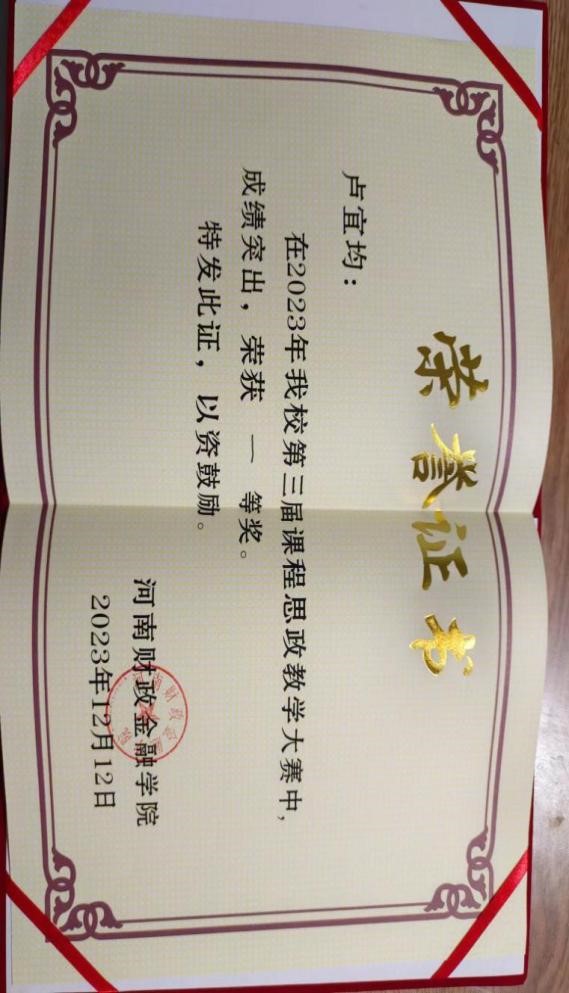 荣誉证书
卢宜均：
在2023年我校第三届课程思政教学大赛中，
成绩突出，荣获 一 等奖。
特发此证，以资鼓励。
河南财政金融学院
2023年12月12日